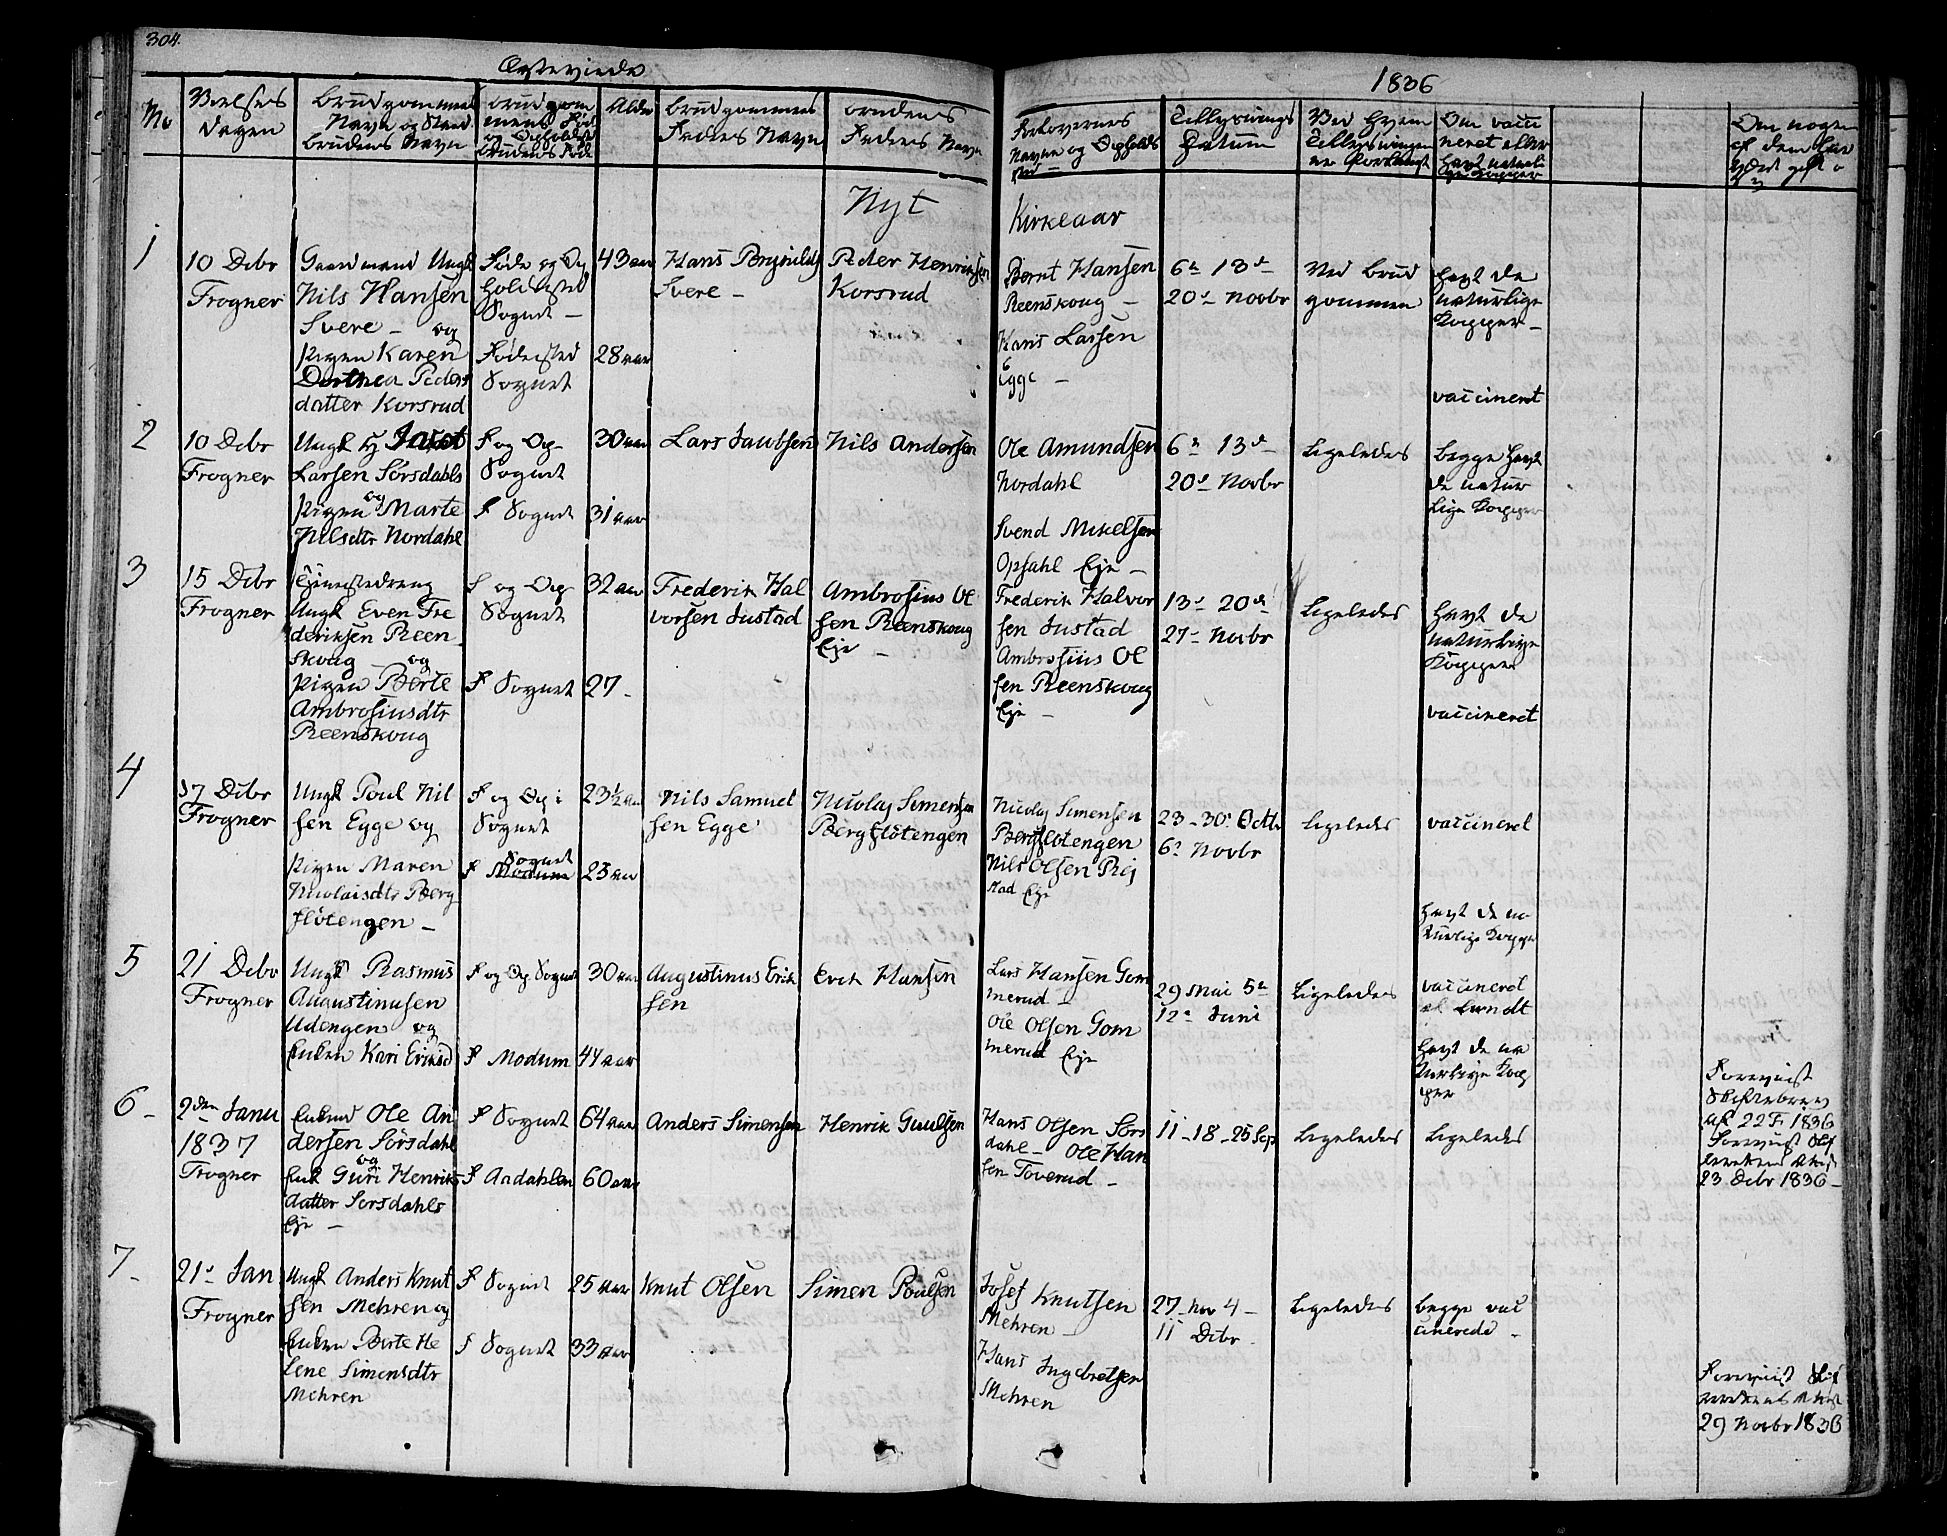 304.
Ægteviede
1836
No
Vielses
dagen
brudgommens
Navn og Stand
brudens Navn
brudgom
mens Føde
og Opholdst
brudens Føde
Alder
brudgommens
Faders Navn
brudens
Faders Navn
Forlovernes
Navne og Opholds
sted
Tillysnings
Datum
Ved hvem
Tillysningen
er forlangt
Om vacci
neret eller
havt naturli
ge Kopper
Om nogen
af dem har
været gift
Nyt
Kirkeaar
1
10 Decbr
Frogner
Gaardmand Ungk
Nils Hansen
Svere - og
Pigen Karen
Dorthea Peders
datter Korsrud
Føde og Op
holdsted
Sognet -
Fødested
Sognet
43 aar
28 aar
Hans
Svere -
Peder Henriksen
Korsrud
Bernt Hansen
Reenskoug -
Hans Larsen
Egge -
6te 13de
20de Novbr
Ved brud
gommen
havt de
naturlige
Kopper -
vaccineret
2
10 Decbr
Frogner
Ungk Jacob
Larsen Sørsdahls
og
Pigen Marte
Nilsdtr Nordahl
F og Op-
Sognet
F Sognet
30 aar
31 aar
Lars Jacobsen
Nils Andersen
Ole Amundsen
Nordahl
Svend Mikelsen
Opsahl Eje -
6te 13de
20de Novbr
Ligeledes
begge havt
de natur
lige Kopper
3
15 Decbr
Frogner
Tjenestedreng
Ungk Even Fre
deriksen Reen
skoug - og
Pigen Børte
Ambrosiusdtr
Reenskoug
F og Op
Sognet
F Sognet
32 aar
27 -
Frederik Hal
vorsen Justad
Ambrosius Ol
sen Reenskoug
Eje -
Frederik Halvor
sen Justad
Ambrosius Ol
sen Reenskoug
Eje -
13de 20de
27de Novbr
Ligeledes
havt de
naturlige
Kopper
vaccineret
4
17 Decbr
Frogner
Ungk Poul Nil
sen Egge og
Pigen Maren
Nicolaisdtr Berg
fløtengen -
F og Op i
Sognet
Sognet
F Modum
23½ aar
23 aar
Nils Samuel
sen Egge
Nicolay Simensen
Bergfløtengen
Nicolay Simensen
Bergfløtengen
Nils Olsen Rej
stad Eje
23 - 30te Octbr
6te Novbr
Ligeledes
vaccineret
havt de na
turlige Kopper
5
21 Decbr
Frogner
Ungk Rasmus
Augustinusen
Udengen og
Enken Kari Eriksd
F og Op Sognet
F Modum
30 aar
44 aar
Augustinus Erik
sen
Erik Hansen
Lars Hansen Gom
merud -
Ole Olsen Gom
merud Eje
29 Mai 5te
12te Juni
Ligeledes
vaccineret
af Lundt
havt de na
turlige Kop
per
6 -
2den Janu
1837
Frogner
Enkmd Ole An
dersen Sørsdahl
og
Enk Guri Henriks
datter Sørsdahls
Eje -
F Sognet
F Aadahlen
64 aar
60 aar
Anders Simensen
Henrik Guulsen
Hans Olsen Sørs
dahl - Ole Han
sen Toverud -
11 - 18 - 25 Sep
Ligeledes
Ligeledes
Foreviist
Skiftebrev
af 22 F 1836
Foreviist
23 Decbr 1836 -
7 -
21de Jan
Frogner
Ungk Anders Knut
sen Mehren og
Enken Birte He
lene Simensdtr
Mehren
F Sognet
F Sognet
25 aar
33 aar
Knut Olsen
Simen Poulsen
Josef Knutsen
Mehren -
Hans Ingebretsen
Mehren
27 - Nov 4 -
11 Decbr
Ligeledes
begge vac
cinerede -
Foreviist Skif
29 Novbr 1836